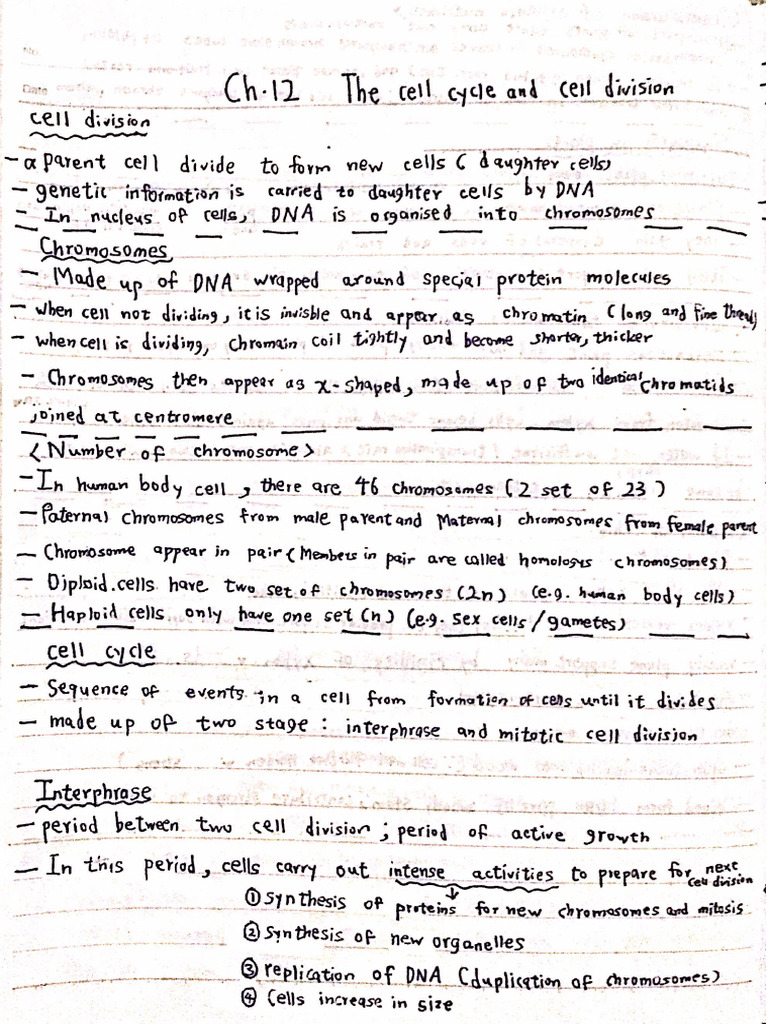 Ch.12 The cell cycle and cell division
cell division
- a parent cell divide to form new cells ( daughter cells)
- genetic information is carried to daughter cells by DNA
- In nucleus of cells, DNA is organised into chromosomes
Chromosomes
- Made up of DNA wrapped around special protein molecules
- when cell not dividing, it is invisble and appear as chromatin ( long and fine thread)
- when cell is dividing, chromain coil tightly and become shorter, thicker
- Chromosomes then appear as x-shaped, made up of two identical chromatids
joined at centromere
<Number of chromosome>
- In human body cell, there are 46 chromosomes (2 set of 23 )
- Paternal chromosomes from male parent and Maternal chromosomes from female parent
- Chromosome appear in pair ( Members in pair are called homologus chromosomes)
- Diploid cells have two set of chromosomes (2n) (e.g. human body cells)
- Haploid cells only have one set (n) (e.g. sex cells / gametes)
cell cycle
- Sequence of events in a cell from formation of cells until it divides
- made up of two stage : interphrase and mitotic cell division
Interphrase
- period between two cell division ; period of active growth
- In this period, cells carry out intense activities to prepare for next cell division
① synthesis of proteins for new chromosomes and mitosis
② synthesis of new organelles
③ replication of DNA (duplication of chromosomes)
④ Cells increase in size